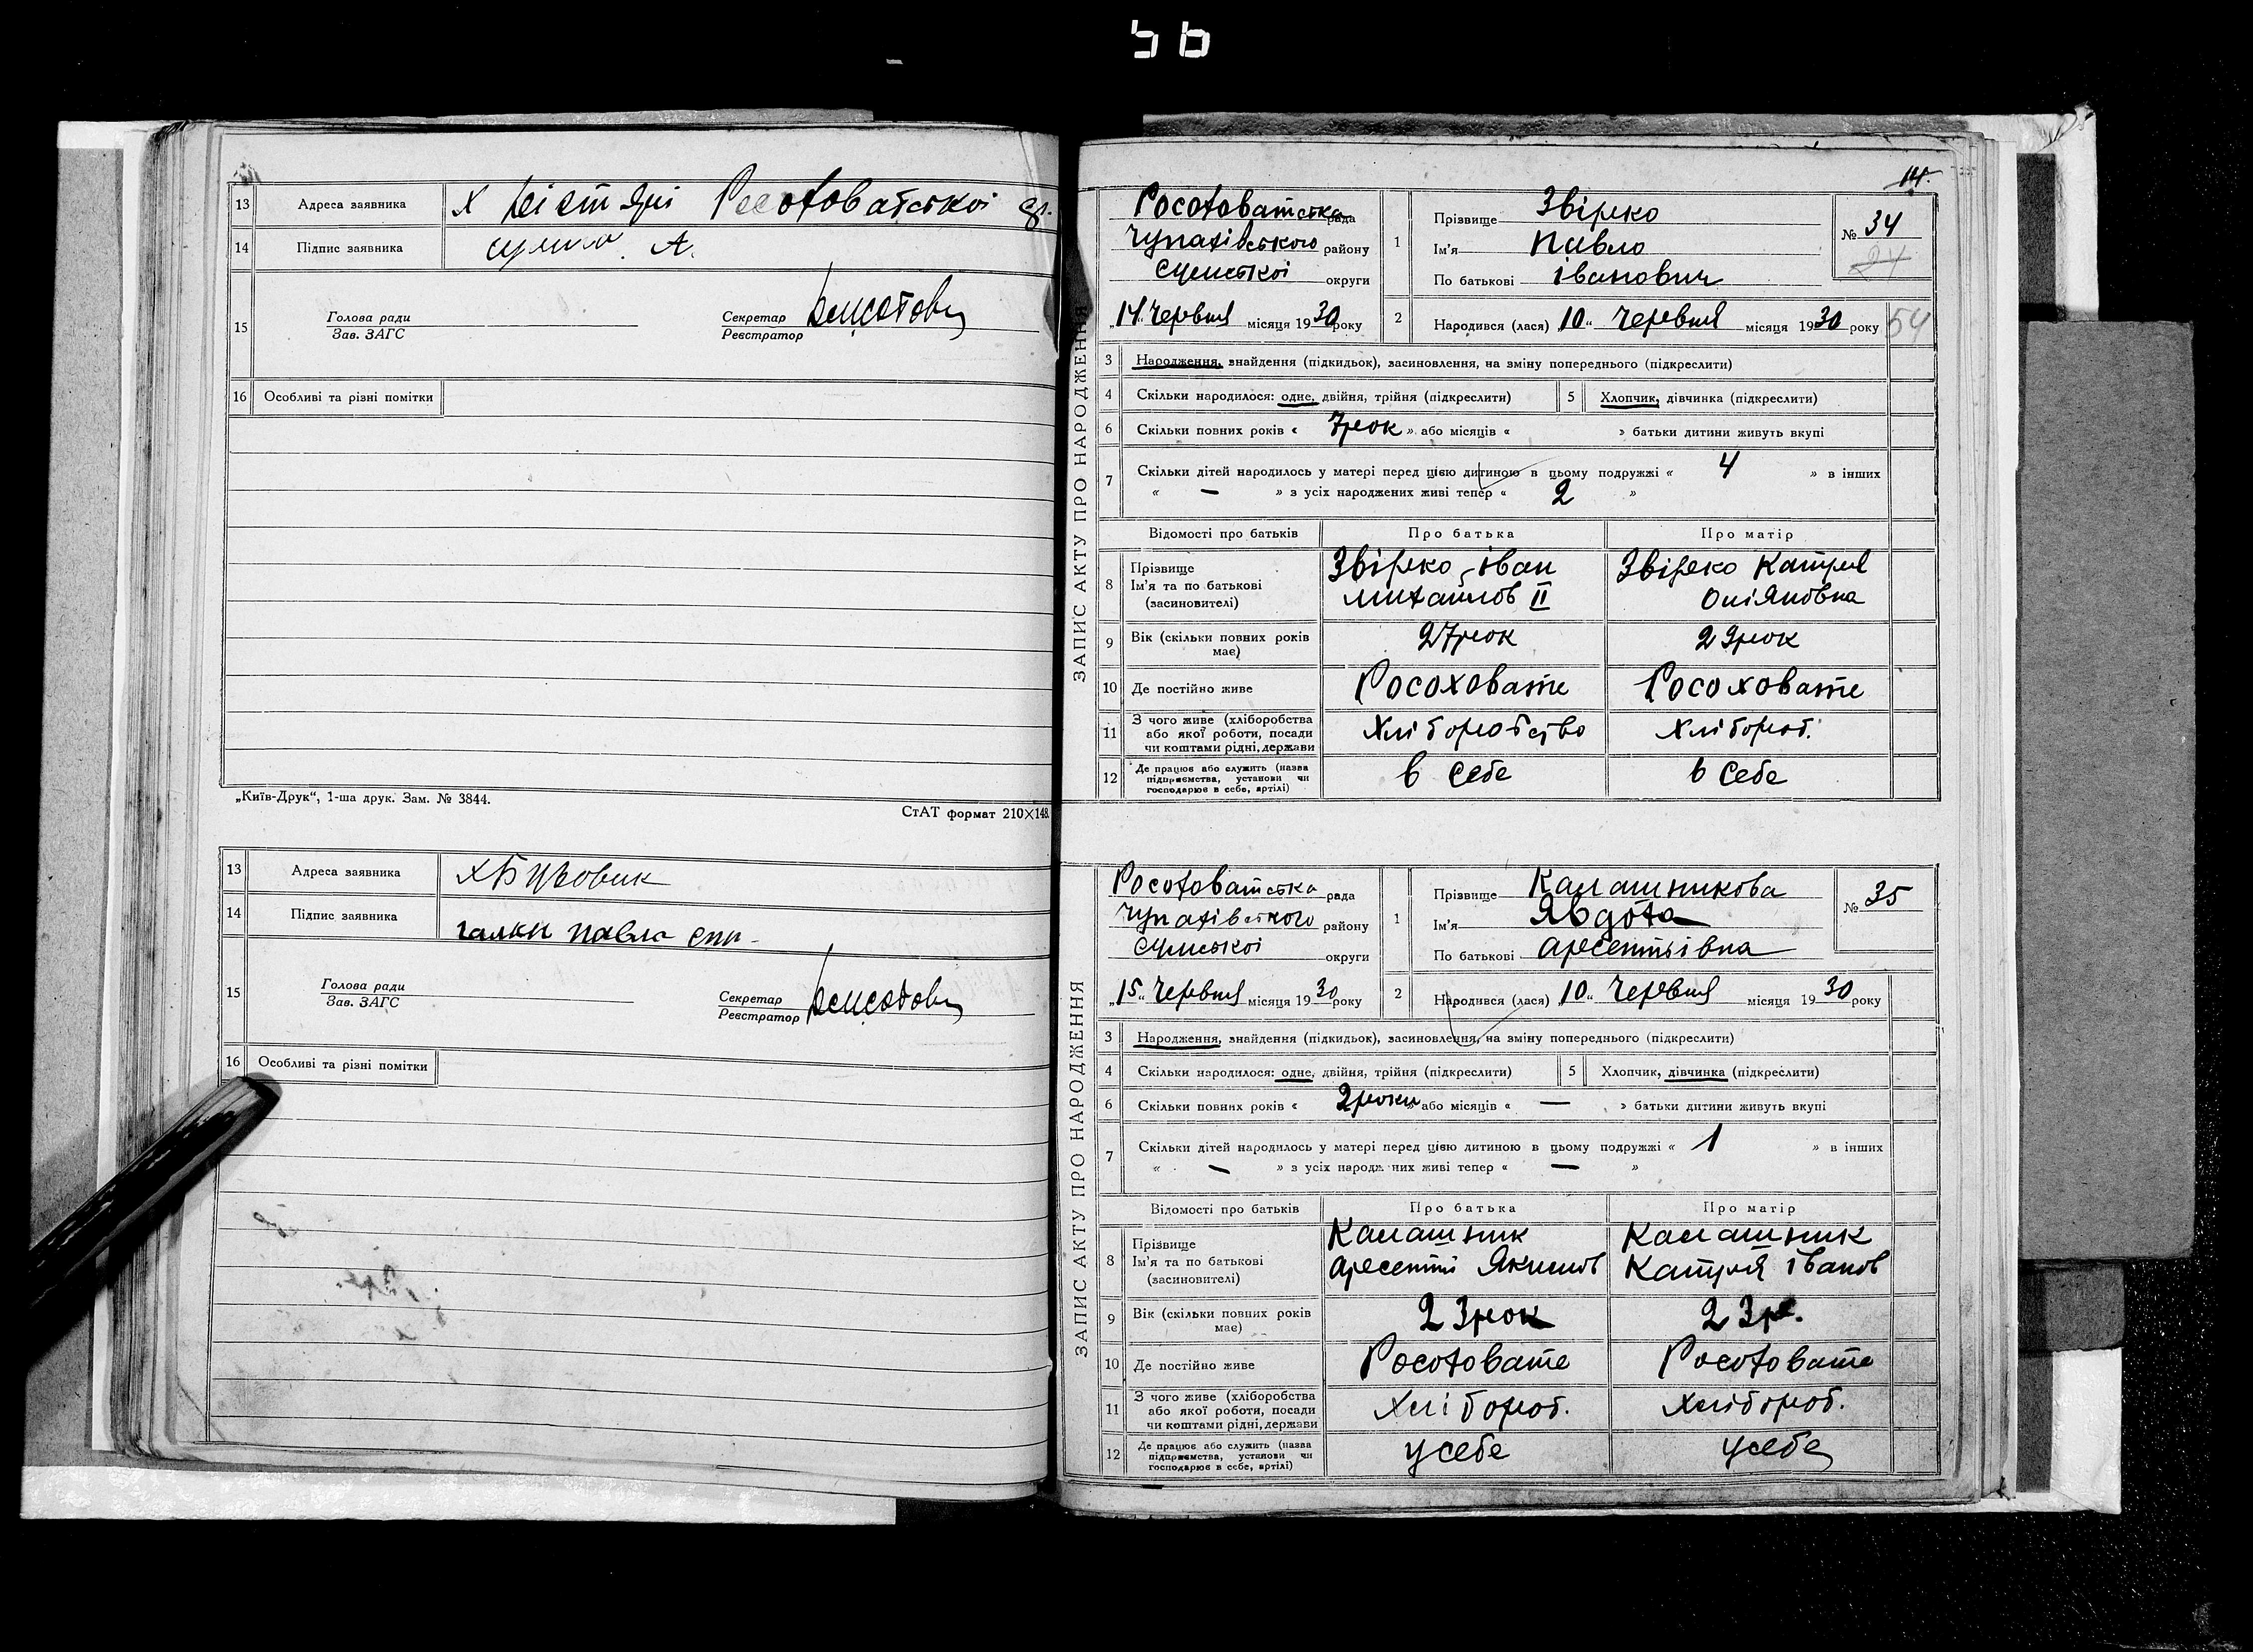 13 Адреса заявника
14 Підпис заявника А.
15 Голова ради
Зав. ЗАГС
Секретар
Реєстратор
16 Особливі та різні помітки
„Київ-Друк“, 1-ша друк. Зам. № 3844.
СтАТ формат 210×148.
13 Адреса заявника
14 Підпис заявника павла
15 Голова ради
Зав. ЗАГС
Секретар
Реєстратор
16 Особливі та різні помітки
14.
ЗАПИС АКТУ ПРО НАРОДЖЕННЯ
Росоховатська рада
Чупахівського району
Сумської округи
„14“ Червня місяця 1930 року
1 Прізвище Звірко
Ім'я Павло
По батькові іванович
№ 34
24
2 Народився (лася) „10“ Червня місяця 1930 року
54
3 Народження, знайдення (підкидьок), засиновлення, на зміну попереднього (підкреслити)
4 Скільки народилося: одне, двійня, трійня (підкреслити)
5 Хлопчик, дівчинка (підкреслити)
6 Скільки повних років « 7рок » або місяців « » батьки дитини живуть вкупі
7 Скільки дітей народилось у матері перед цією дитиною в цьому подружжі « 4 » в інших
« — » з усіх народжених живі тепер « 2 »
Відомості про батьків Про батька Про матір
8 Прізвище
Ім'я та по батькові
(засиновителі)
Звірко іван
михайлов II
Звірко Катря
9 Вік (скільки повних років
має)
27рок 29рок
10 Де постійно живе Росоховате Росоховате
11 З чого живе (хліборобства
або якої роботи, посади
чи коштами рідні, держави
Хліборобство Хлібороб.
12 Де працює або служить (назва
підприємства, установи чи
господарює в себе, артілі)
в себе в себе
ЗАПИС АКТУ ПРО НАРОДЖЕННЯ
Росоховатська рада
Чупахівського району
Сумської округи
„15“ Червня місяця 1930 року
1 Прізвище Калашникова
Ім'я Явдоха
По батькові арсентіівна
№ 35
2 Народився (лася) „10“ Червня місяця 1930 року
3 Народження, знайдення (підкидьок), засиновлення, на зміну попереднього (підкреслити)
4 Скільки народилося: одне, двійня, трійня (підкреслити)
5 Хлопчик, дівчинка (підкреслити)
6 Скільки повних років « 2роки » або місяців « — » батьки дитини живуть вкупі
7 Скільки дітей народилось у матері перед цією дитиною в цьому подружжі « 1 » в інших
« — » з усіх народж них живі тепер « — »
Відомості про батьків Про батька Про матір
8 Прізвище
Ім'я та по батькові
(засиновителі)
Калашник
арсентій Якимов
Калашник
Катря іванов
9 Вік (скільки повних років
має)
23рок 23р.
10 Де постійно живе Росоховате Росоховате
11 З чого живе (хліборобства
або якої роботи, посади
чи коштами рідні, держави
Хлібороб. Хлібороб.
12 Де працює або служить (назва
підприємства, установи чи
господарює в себе, артілі)
усебе усебе